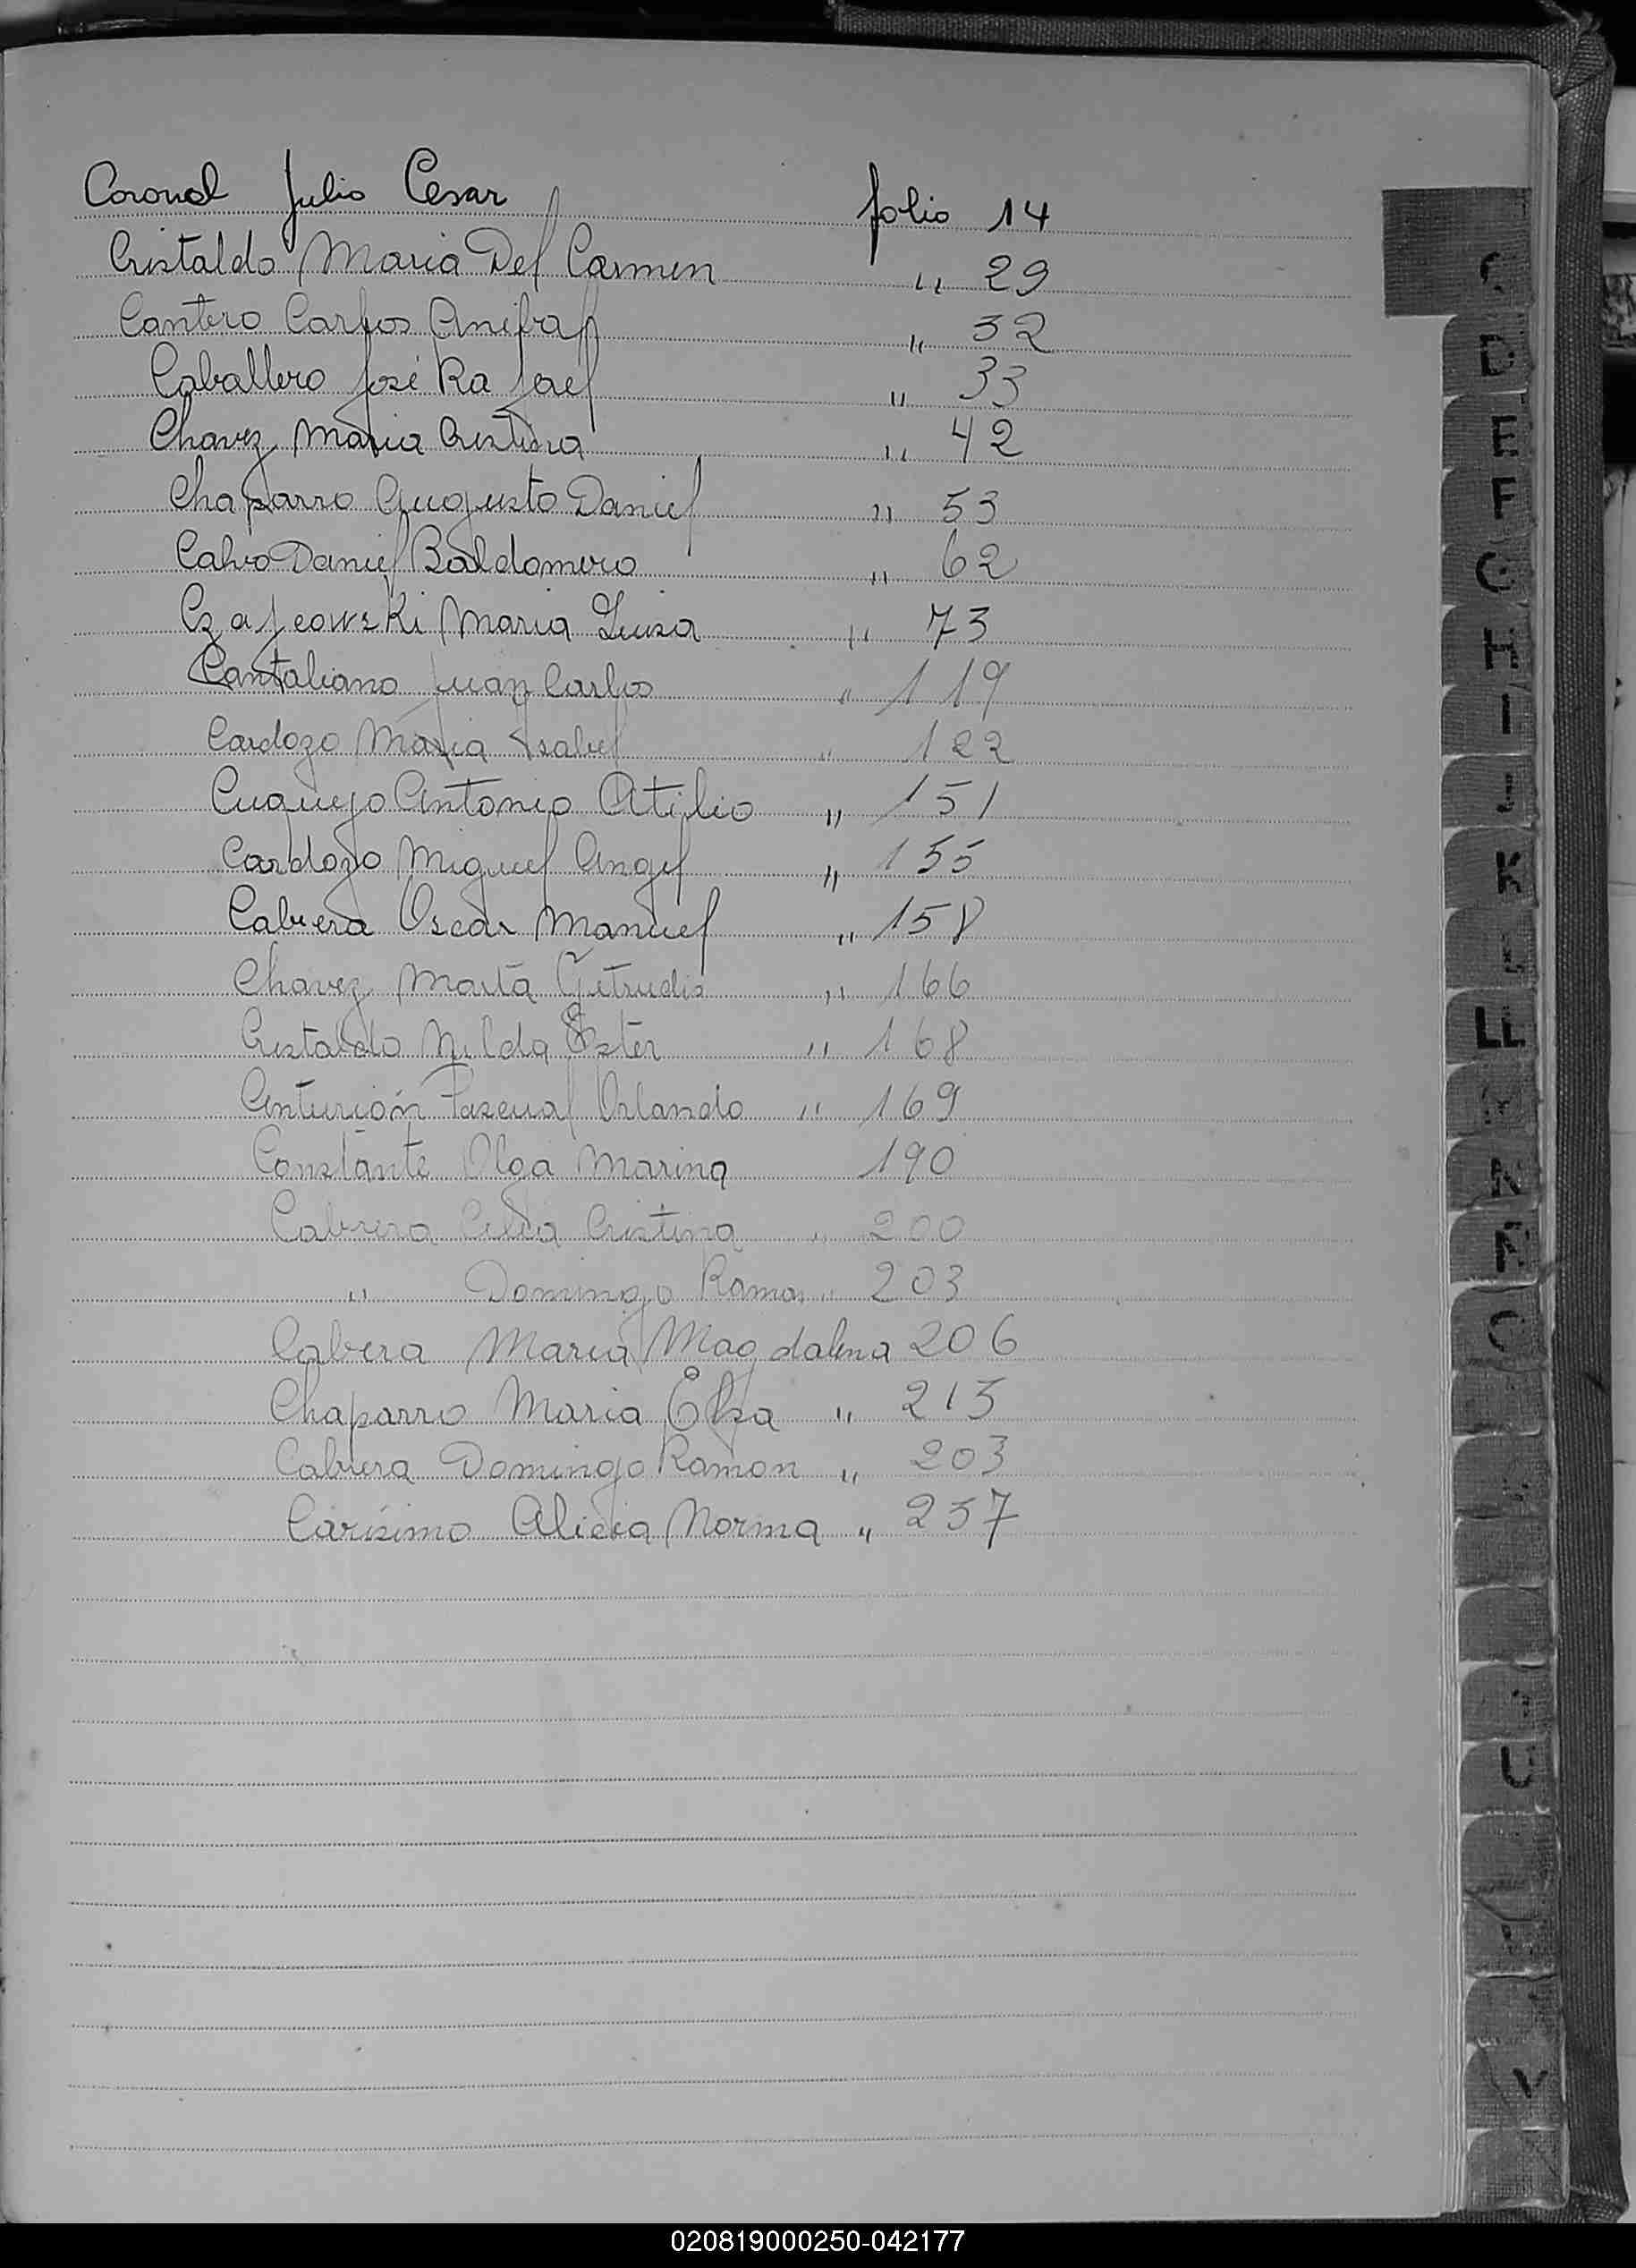 Coronel Julio Cesar folio 14
Cristaldo Maria Del Carmen " 29
Cantero Carlos Anibal " 32
Caballero José Rafael " 33
Chavez Maria Cristina " 42
Chaparro Augusto Daniel " 53
Calvo Daniel Baldomero " 62
Maria Luisa " 73
Cantaliano Juan Carlos " 119
Cardozo Maria Isabel " 122
Antonio Atilio " 151
Cardozo Miguel Angel " 155
Cabrera Oscar Manuel " 158
Chavez Marta Getrudis " 166
Cristaldo Nilda Ester " 168
Centurión Pascual Orlando " 169
Constante Olga Marina 190
Cabrera Celia Cristina " 200
" Domingo Ramon " 203
Cabrera Maria Magdalena 206
Chaparro Maria Elsa " 215
Cabrera Domingo Ramon " 203
Carisimo Alicia Norma " 237
C
D
E
F
G
H
I
K
LL
N
O
U
020819000250-042177